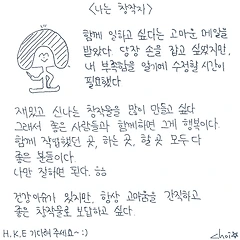 <나는 창작자>
함께 일하고 싶다는 고마운 메일을
받았다. 당장 손을 잡고 싶었지만,
내 부족함을 알기에 수정할 시간이
필요했다.
재밌고 신나는 창작물을 많이 만들고 싶다
그래서 좋은 사람들과 함께하면 그게 행복이다.
함께 작업했던 곳, 하는 곳, 할 곳 모두 다
좋은 분들이다.
나만 잘하면 된다. ㅎㅎ
건강 이유가 있지만, 항상 고마움을 간직하고
좋은 창작물로 보답하고 싶다.
H.K.E 기다려 주세요~ :)
Choi